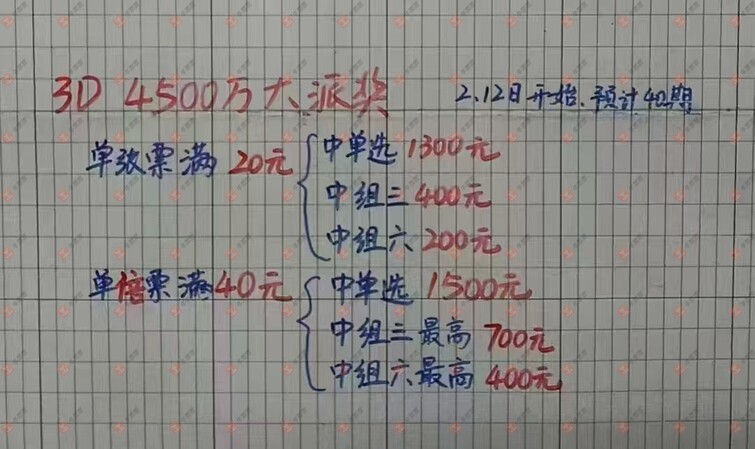 3D 4500万大派奖
2.12日开始.预计40期
单张票满 20元
中单选 1300元
中组三 400元
中组六 200元
单倍票满40元
中单选 1500元
中组三最高 700元
中组六最高 400元